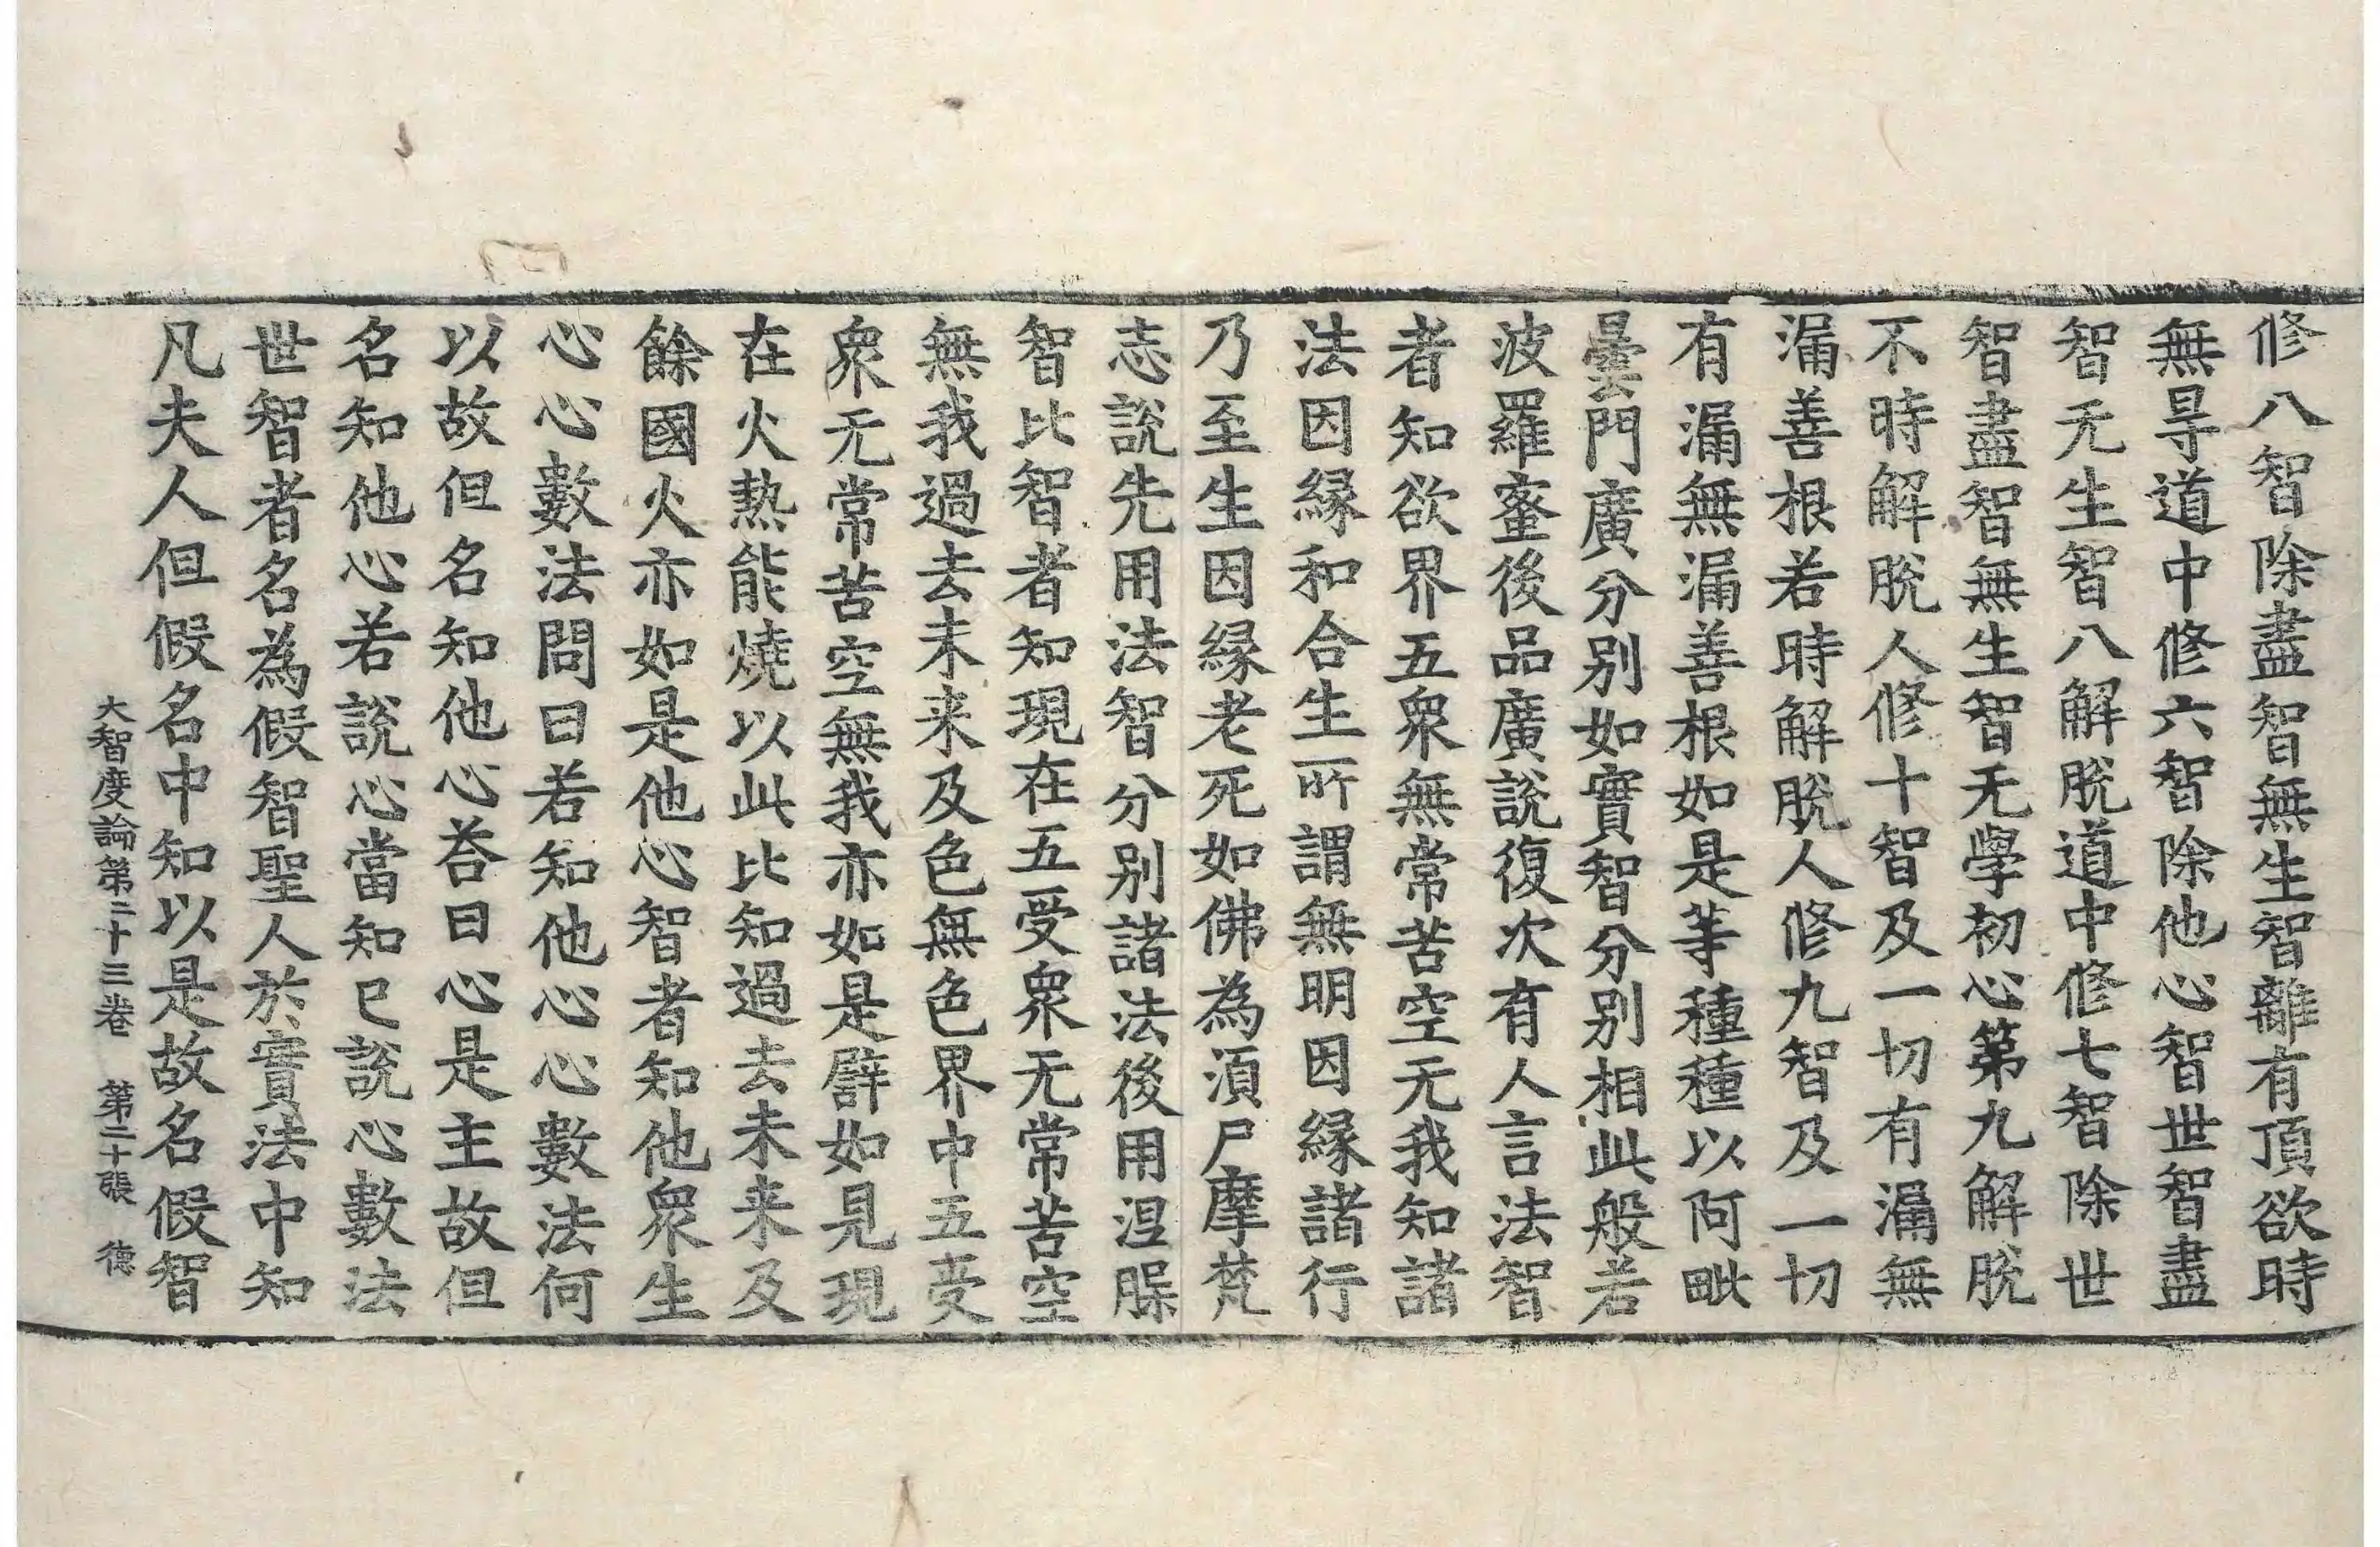 修八智除盡智無生智離有頂欲時
無㝵道中修六智除他心智世智盡
智无生智八解脫道中修七智除世
智盡智無生智无學初心第九解脫
不時解脫人修十智及一切有漏無
漏善根若時解脫人修九智及一切
有漏無漏善根如是等種種以阿毗
曇門廣分別如實智分別相此般若
波羅蜜後品廣說復次有人言法智
者知欲界五眾無常苦空无我知諸
法因緣和合生所謂無明因緣諸行
乃至生因緣老死如佛為湏尸摩梵
志說先用法智分別諸法後用涅槃
智比智者知現在五受眾无常苦空
無我過去未来及色無色界中五受
眾无常苦空無我亦如是譬如見現
在火熱能燒以此比知過去未来及
餘國火亦如是他心智者知他眾生
心心數法問曰若知他心心數法何
以故但名知他心荅曰心是主故但
名知他心若說心當知已說心數法
世智者名為假智聖人於實法中知
凡夫人但假名中知以是故名假智
大智度論第二十三卷 第二十張 德